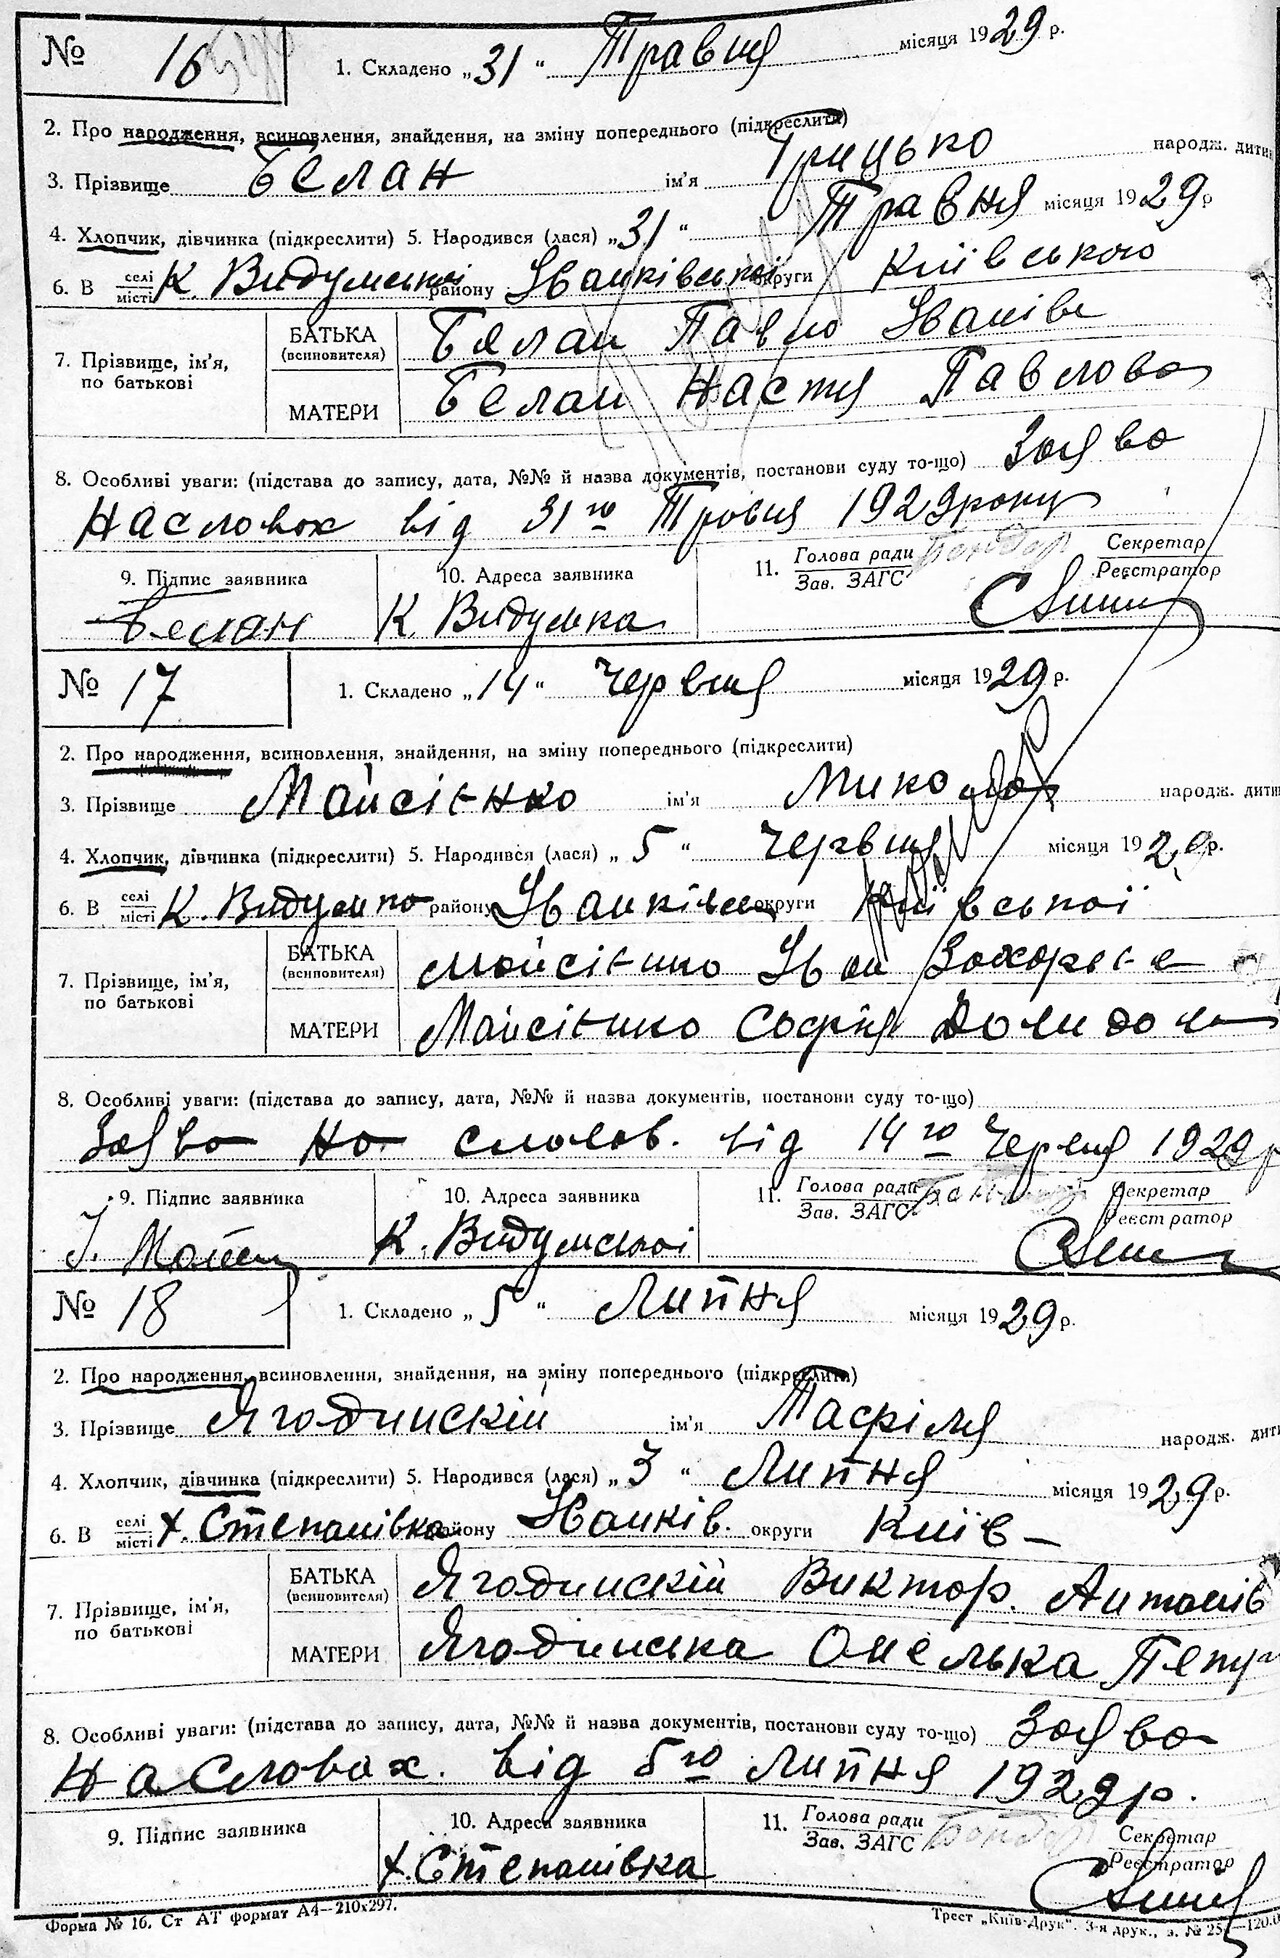 № 16 1. Складено „31“ Травня місяця 1929 р.
2. Про народження, всиновлення, знайдення, на зміну попереднього (підкреслити)
3. Прізвище Белан ім'я Грицько народж. дитин
4. Хлопчик, дівчинка (підкреслити) 5. Народився (лася) „31“ Травня місяця 1929 р
6. В селі місті К. Видумської району Іванківської округи Київського
7. Прізвище, ім'я, по батькові БАТЬКА (всиновителя) Белан Павло Іванів
МАТЕРИ Белан Настя Павлова
8. Особливі уваги: (підстава до запису, дата, №№ й назва документів, постанови суду то-що) Заява
На словах від 31го Травня 1929 року
9. Підпис заявника 10. Адреса заявника 11. Голова ради Зав. ЗАГС Бондар Секретар Реєстратор
Белан К. Видумка
№ 17 1. Складено „14“ Червня місяця 1929 р.
2. Про народження, всиновлення, знайдення, на зміну попереднього (підкреслити)
3. Прізвище Майсієнко ім'я Микола народж. дитин
4. Хлопчик, дівчинка (підкреслити) 5. Народився (лася) „5“ Червня місяця 1929 р.
6. В селі місті К. Видумка району Іванківсь округи Київської
7. Прізвище, ім'я, по батькові БАТЬКА (всиновителя) Мойсієнко Іван
МАТЕРИ Майсієнко Софія
8. Особливі уваги: (підстава до запису, дата, №№ й назва документів, постанови суду то-що)
Заява на словов. від 14го Червня 1929 р
9. Підпис заявника 10. Адреса заявника 11. Голова ради Зав. ЗАГС Секретар Реєстратор
К. Видумської
№ 18 1. Складено „5“ Липня місяця 1929 р.
2. Про народження, всиновлення, знайдення, на зміну попереднього (підкреслити)
3. Прізвище Ягодинскій ім'я Тафіля народж. дити
4. Хлопчик, дівчинка (підкреслити) 5. Народився (лася) „3“ Липня місяця 1929 р.
6. В селі місті х. Степанівка району Іванків. округи Київ
7. Прізвище, ім'я, по батькові БАТЬКА (всиновителя) Ягодинскій Виктор. Антонів
МАТЕРИ Ягодинська Омелька
8. Особливі уваги: (підстава до запису, дата, №№ й назва документів, постанови суду то-що) Заява
На Словах. від 5го Липня 1929 р.
9. Підпис заявника 10. Адреса заявника 11. Голова ради Зав. ЗАГС Бондар Секретар Реєстратор
х. Степанівка
Форма № 16. Ст АТ формат А4—210х297. Трест „Київ-Друк“. 3-я друк., з. № 25